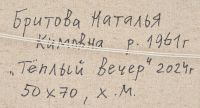 Бритова Наталья
Кимовна р. 1961г
"Тёплый вечер" 2024г
50х70, х.м.